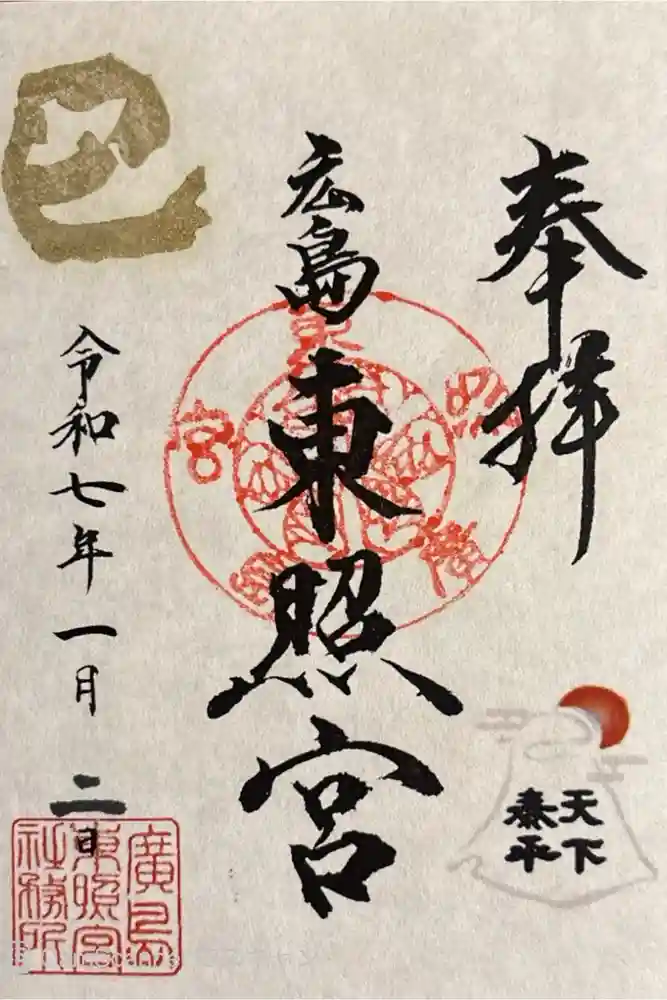 奉拝
天下
泰平
広島
東照宮
東照宮
巳
令和七年一月二日
廣島
東照宮
社務所